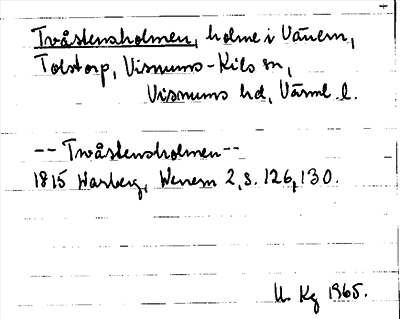 Tvåstensholmen, holme i Vänern,
Tolstorp, Visnums-Kils sn,
Visnums hd, Värml. l.
-- Twåstensholmen --
1815 Warberg, Wenern 2, s. 126, 130.
U. Kg 1965.